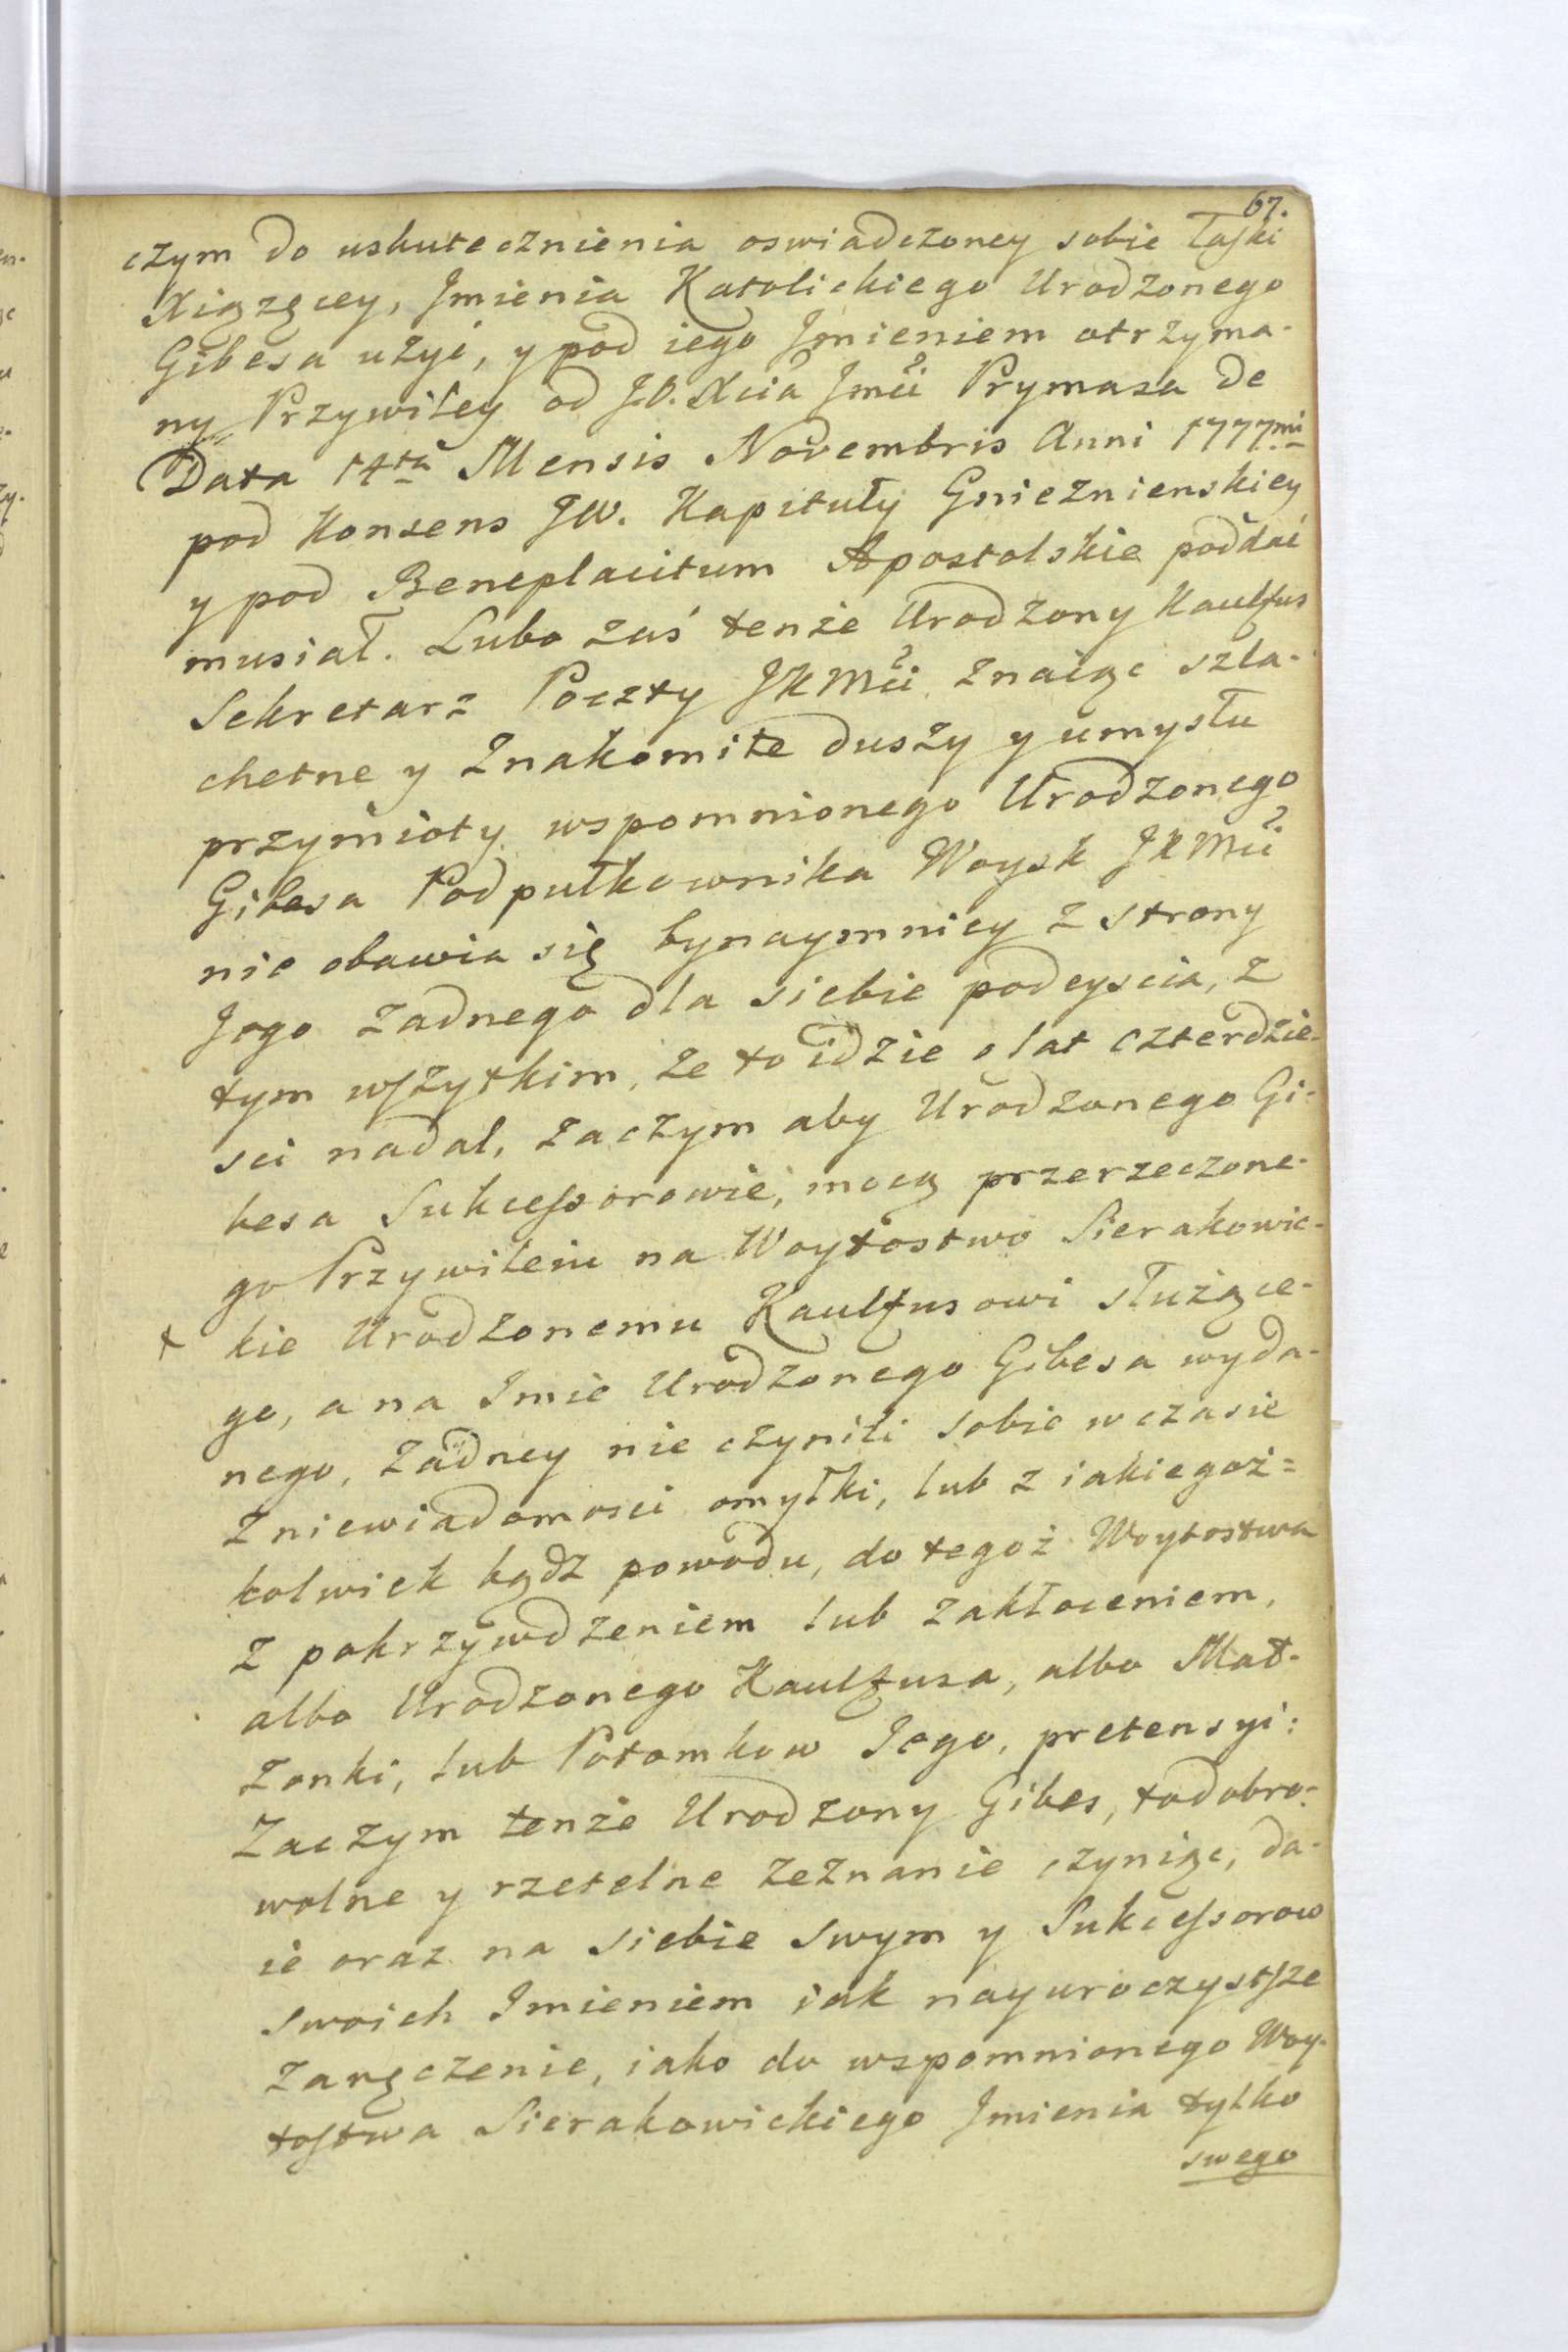 67.
czym do uskutecznienia oswiadczoney sobie łaski
Xiązęcey, Jmienia Katolickiego Urodzonego
Gibesa użyć, y pod iego Jmieniem otrzyma-
ny Przywiley od J.O. Xcia Jmći Prymasa de
Data 14ta Mensis Novembris Anni 1777mi
pod Konsens JW. Kapituły Gnieznienskiey
y pod Beneplacitum Apostolskie poddać
musiał. Lubo zaś tenże Urodzony Kaulfus
Sekretarz Poczty JKMći znaiąc szla-
chetne y znakomite duszy y umysłu
przymioty wspomnionego Urodzonego
Gibesa Podpułkownika Woysk JKMći
nie obawia się bynaymniey z strony
Jego żadnego dla siebie podeyscia, z
tym wszytkim, że to idzie o lat czterdzie-
sci nadal, zaczym aby Urodzonego Gi-
besa Sukcessorowie, mocą przerzeczone-
go Przywileiu na Woytostwo Sierakowic-
+ kie Urodzonemu Kaulfusowi służące-
go, a na Jmie Urodzonego Gibesa wyda-
nego, żadney nie czynili sobie w czasie
z niewiadomosci omyłki, lub z iakiegoż=
kolwiek bądz powodu, do tegoż Woytostwa
z pokrzywdzeniem lub zakłoceniem,
albo Urodzonego Kaulfusa, albo Mał-
żonki, lub Potomkow Jego, pretensyi:
Zaczym tenże Urodzony Gibes, to dobro-
wolne y rzetelne zeznanie czyniąc, da-
ie oraz na siebie swym y Sukcessorow
swoich Jmieniem iak nayuroczystsze
zaręczenie, iako do wspomnionego Woy-
tostwa Sierakowickiego Jmienia tylko
swego